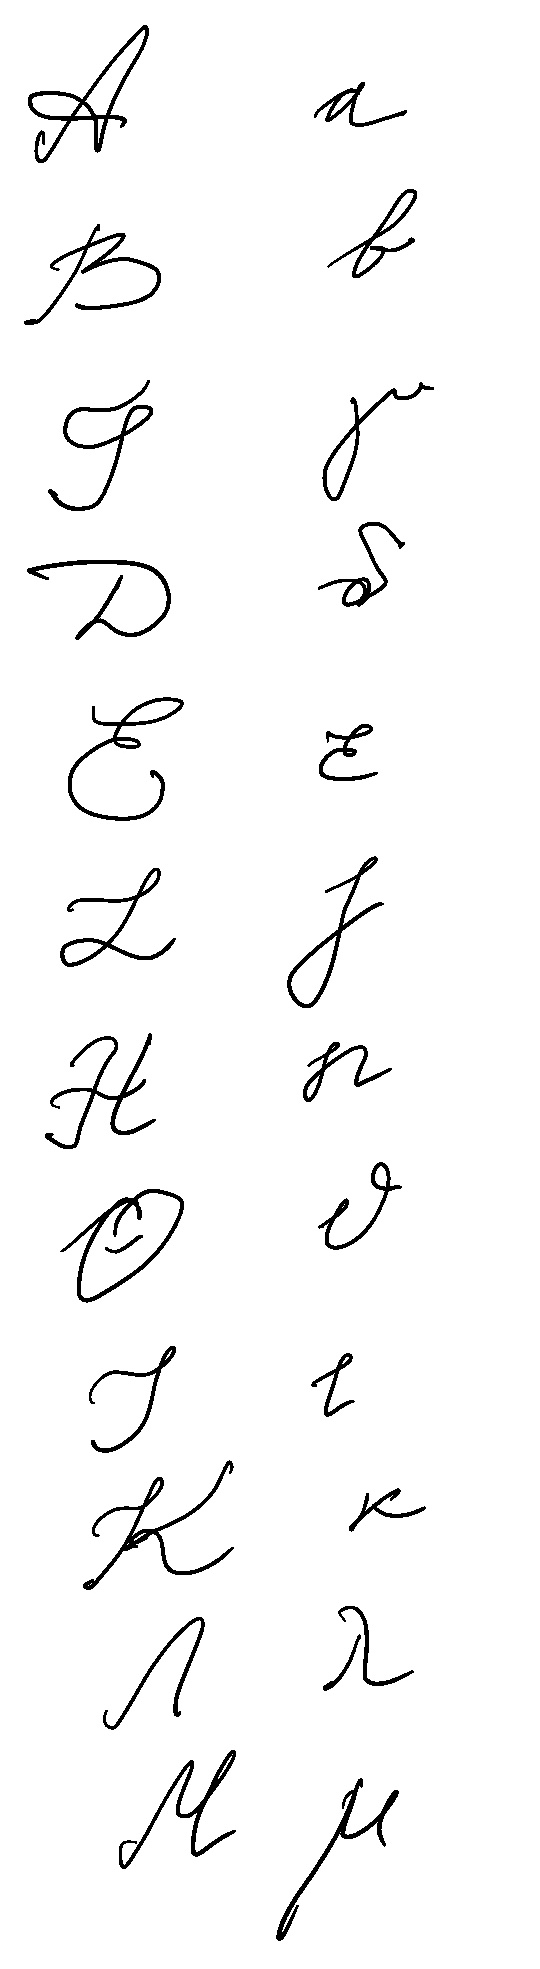 Α α
Β β
Γ γ
Δ δ
Ε ε
Ζ ζ
Η η
Θ θ
Ι ι
Κ κ
Λ λ
Μ μ